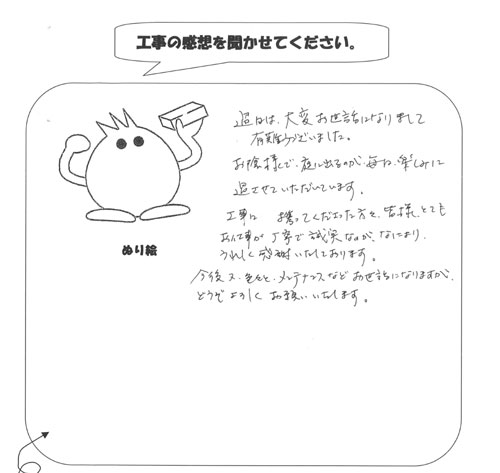 工事の感想を聞かせてください。
過日は、大変お世話になりまして
有難うございました。
お陰様で、庭に出るのが毎日、楽しみに
過させていただいています。
工事に 携ってくださった方々、皆様、とても
お仕事が丁寧で誠実なのが、なにより、
うれしく感謝いたしております。
今後又、色々と、メンテナンスなどお世話になりますが、
どうぞよろしくお願いいたします。
ぬり絵